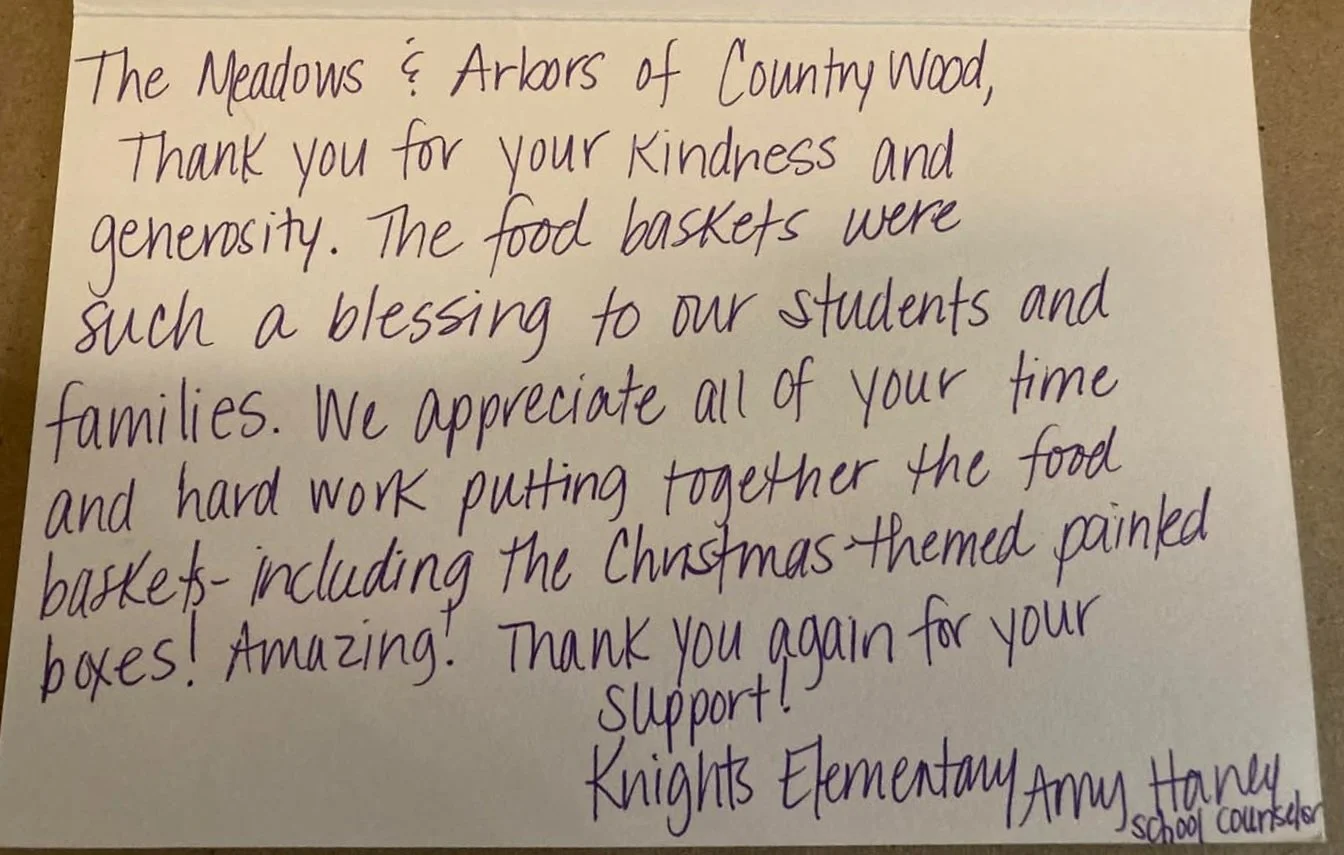 The Meadows & Arbors of Country Wood,
Thank you for your kindness and
generosity. The food baskets were
such a blessing to our students and
families. We appreciate all of your time
and hard work putting together the food
baskets- including the Christmas-themed painted
boxes! Amazing! Thank you again for your
support!
Knights Elementary Amy Haney
school counselor